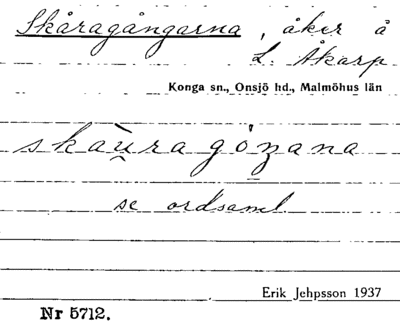 Skåragångarna, åker å
L. Åkarp
Konga sn., Onsjö hd., Malmöhus län
se ordsaml.
Erik Jehpsson 1937
Nr 5712.